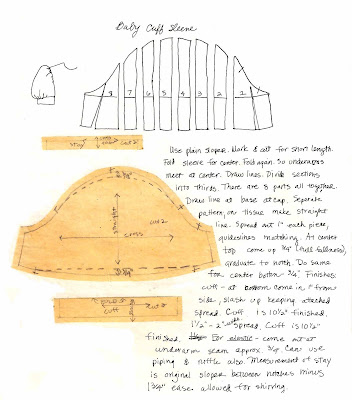 Baby Cuff Sleeve
8 7 6 5 4 3 2 1
stay cut 2
Use plain sloper. Mark & cut for short length.
Fold sleeve for center. Fold again. So underarms
meet at center. Draw lines. Divide sections
into thirds. There are 8 parts all together.
Draw line at base of cap. Separate
pattern, on tissue make straight
line. Spread out 1" each piece,
guidelines matching. At center
top come up 3/4" (full fullness),
graduate to notch. Do same
for center bottom 3/4". Finishes:
cuff - at bottom come in 1" from
side, slash up keeping attached
spread. Cuff is 10 1/2" finished.
1 1/2" - 2" spread. Cuff is 10 1/2"
finished. For elastic - come out at
underarm seam approx 3/4". Can use
piping & ruffle also. Measurement of stay
is original sloper between notches minus
1 3/4" ease allowed for shirring.
straight
cross
cut 2
cuff
cut 2